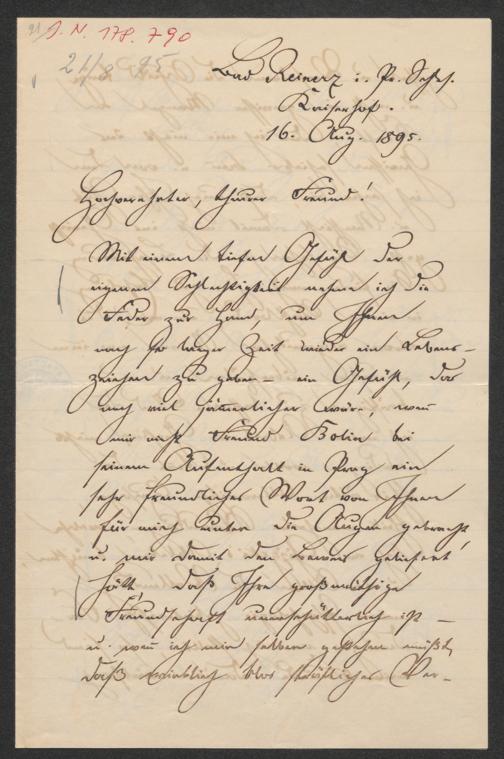 J. N. 178.790
21/8 95
Bad Reinerz i. Pr. Schl.
Kaiserhof.
16. Aug. 1895.
Hochverehrter, theurer Freund!
Mit einem tiefen Gefühl der
eigenen Schlechtigkeit nehme ich die
Feder zur Hand, um Ihnen
nach so langer Zeit wieder ein Lebens-
zeichen zu geben – ein Gefühl, das
noch viel jämerlicher wäre, wen
mir nicht Freund Bolin bei
seinem Aufenthalt in Prag ein
sehr freundliches Wort von Ihnen
für mich unter die Augen gebracht
u. mir damit den Beweis geliefert
hätte, daß Ihre großmüthige
Freundschaft unerschütterlich ist –
u. wen ich mir selber gestehen müßte,
daß wirklich blos sträfliches Ver-